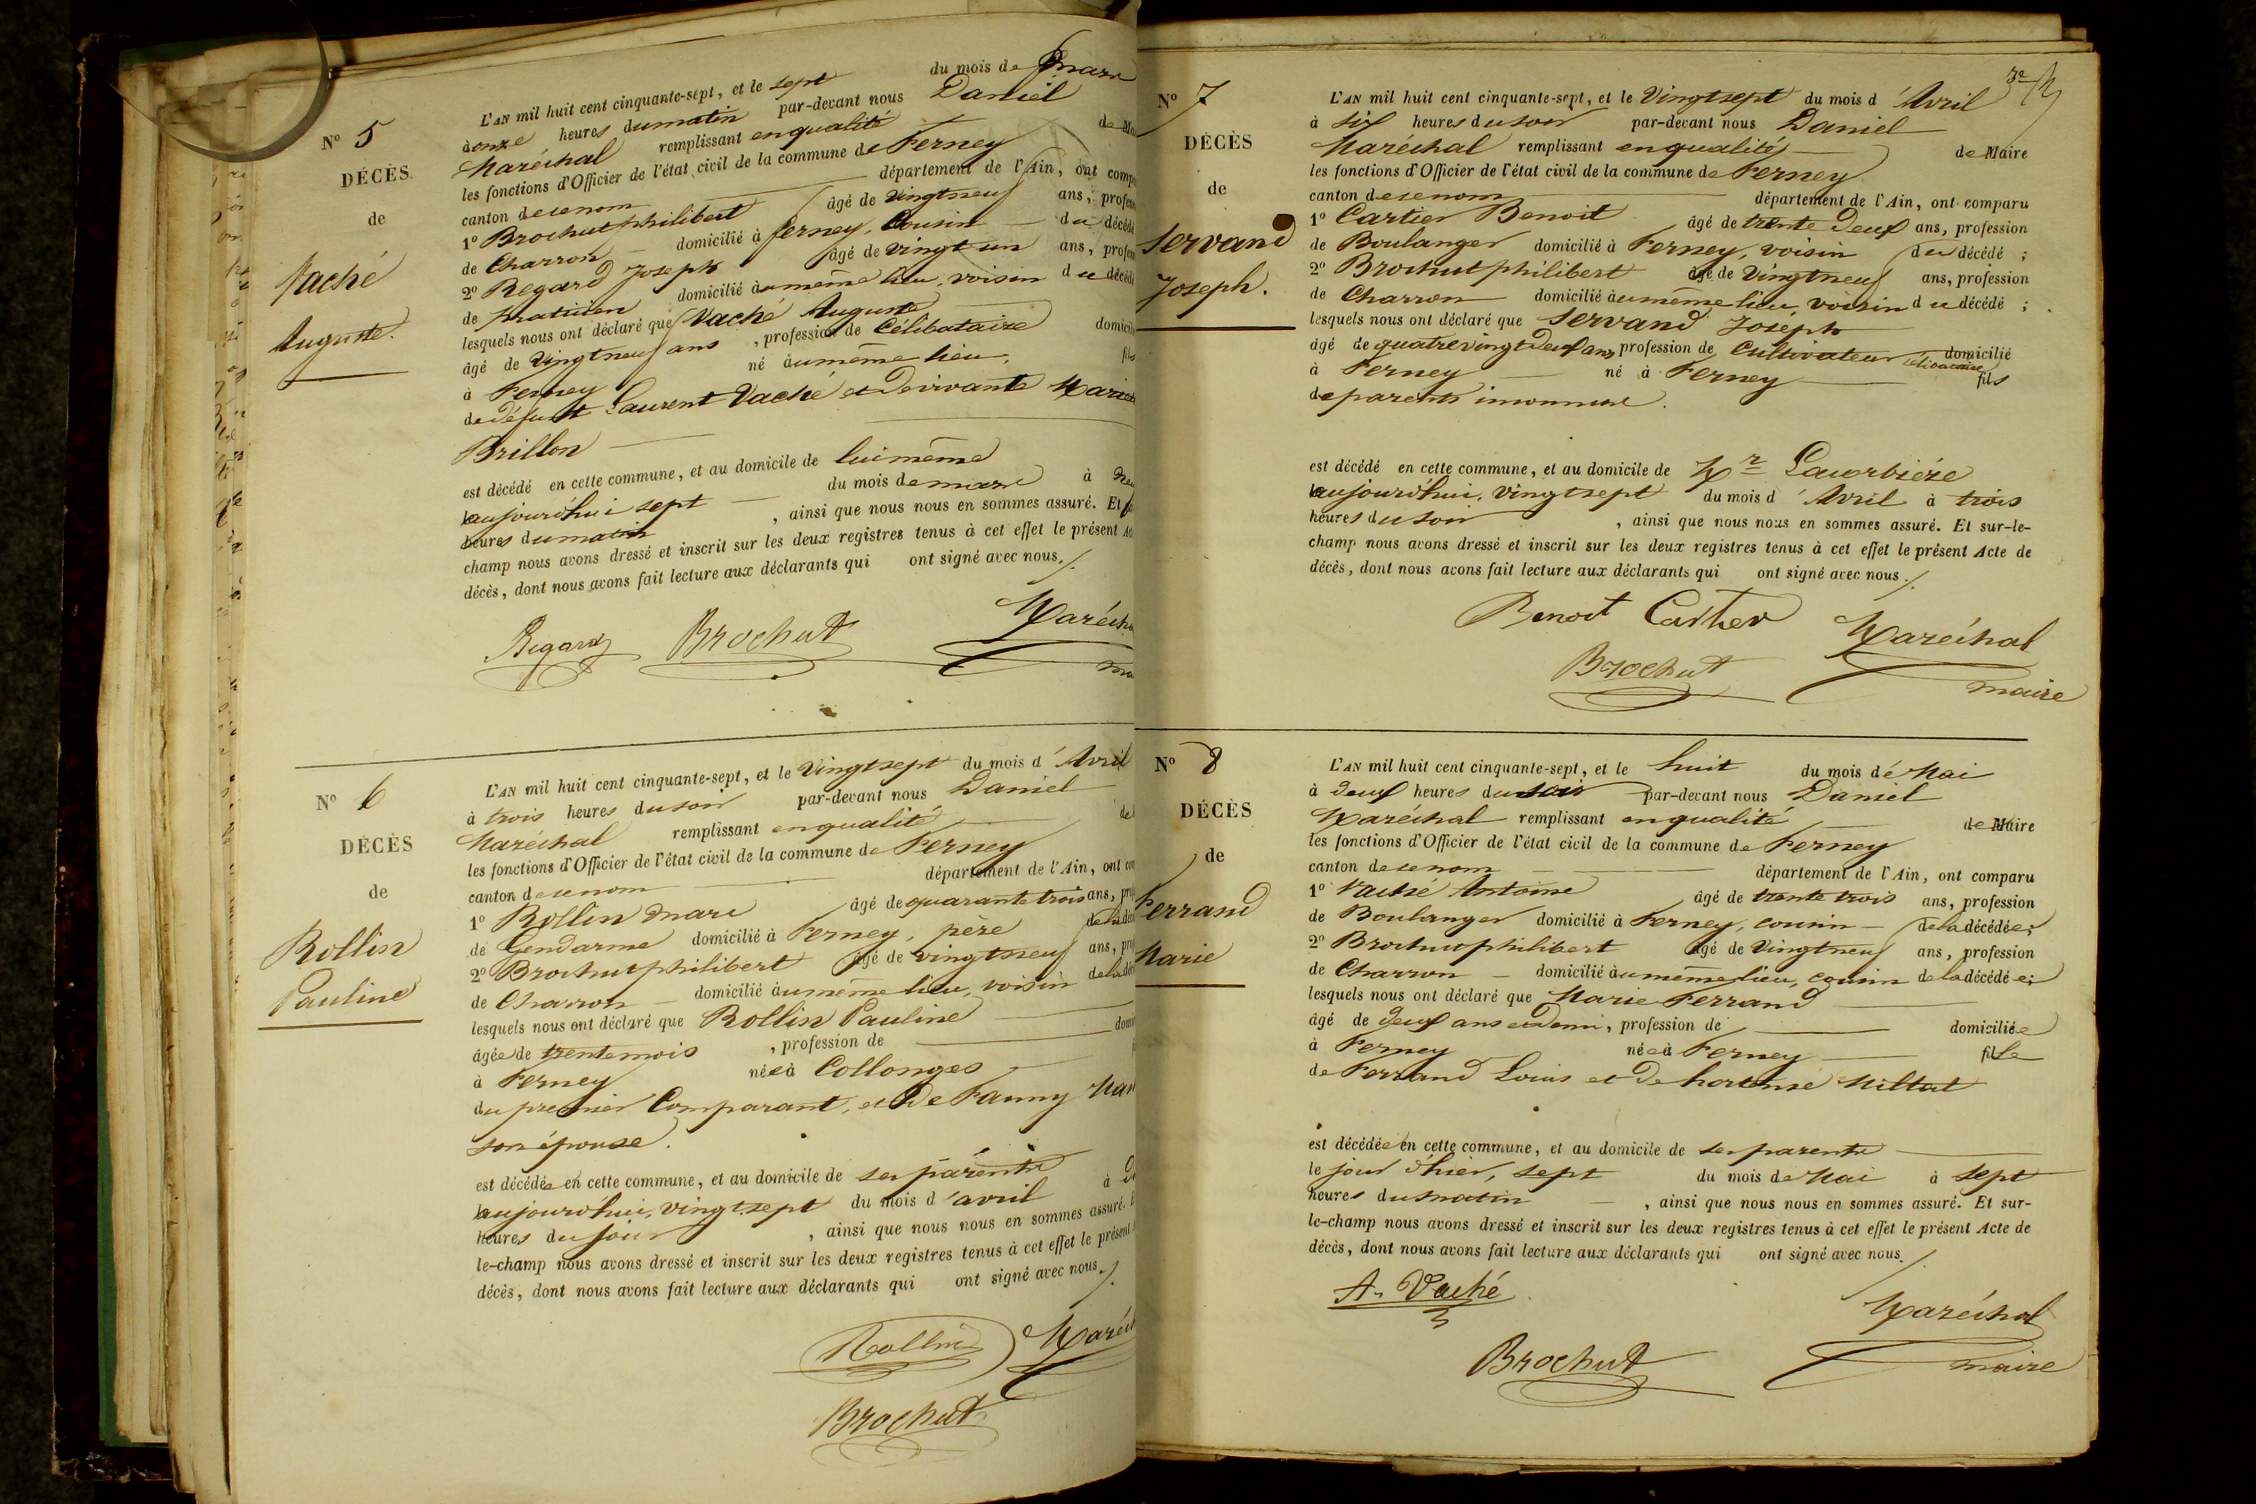 N° 5
DÉCÈS
de
Vaché
Auguste.
L'AN mil huit cent cinquante-sept, et le sept du mois de mars
à onze heures du matin par-devant nous Daniel
Maréchal remplissant en qualité de
les fonctions d'Officier de l'état civil de la commune de Ferney
canton de ce nom département de l'Ain, ont
1° Brochut philibert âgé de vingt neuf ans,
de Charron domicilié à ferney, Cousin du décédé
2° Regard Joseph âgé de vingt un ans,
de praticien domicilié au même lieu, voisin du décédé
lesquels nous ont déclaré que Vaché Auguste
âgé de vingt neuf ans, profession de Célibataire
à Ferney né au même lieu, fils
de défunt Laurent Vaché et de vivante
Brillon
est décédé en cette commune, et au domicile de lui même
aujourd'hui sept du mois de mars à
heures du matin, ainsi que nous nous en sommes assuré. Et
champ nous avons dressé et inscrit sur les deux registres tenus à cet effet le présent
décès, dont nous avons fait lecture aux déclarants qui ont signé avec nous./.
Regard Brochut
N° 6
DÉCÈS
de
Rollin
Pauline
L'AN mil huit cent cinquante-sept, et le vingt sept du mois d'Avril
à trois heures du soir par-devant nous Daniel
Maréchal remplissant en qualité
les fonctions d'Officier de l'état civil de la commune de Ferney
canton de ce nom département de l'Ain, ont
1° Rollin marc âgé de quarante trois ans,
de Gendarme domicilié à Ferney, père de la
2° Brochut philibert âgé de vingt neuf ans,
de Charron domicilié au même lieu, voisin de la
lesquels nous ont déclaré que Rollin Pauline
âgée de trente mois, profession de
à Ferney née à Collonges
du premier Comparant, et de Fanny
son épouse.
est décédée en cette commune, et au domicile de ses parents
aujourd'hui, vingt sept du mois d'avril à
heures du jour, ainsi que nous nous en sommes assuré.
le-champ nous avons dressé et inscrit sur les deux registres tenus à cet effet le présent
décès, dont nous avons fait lecture aux déclarants qui ont signé avec nous./.
Rollin
Brochut
N° 7
DÉCÈS
de
Servand
Joseph.
L'AN mil huit cent cinquante-sept, et le vingt sept du mois d'Avril
à six heures du soir par-devant nous Daniel
Maréchal remplissant en qualité de Maire
les fonctions d'Officier de l'état civil de la commune de Ferney
canton de ce nom département de l'Ain, ont comparu
1° Cartier Benoit âgé de trente deux ans, profession
de Boulanger domicilié à Ferney, voisin du décédé ;
2° Brochut philibert âgé de vingt neuf ans, profession
de Charron domicilié au même lieu, voisin du décédé ;
lesquels nous ont déclaré que Servand Joseph
âgé de quatre vingt deux ans, profession de Cultivateur célibataire domicilié
à Ferney né à Ferney fils
de parents inconnus.
est décédé en cette commune, et au domicile de Mr
aujourd'hui, vingt sept du mois d'Avril à trois
heures du soir, ainsi que nous nous en sommes assuré. Et sur-le-
champ nous avons dressé et inscrit sur les deux registres tenus à cet effet le présent Acte de
décès, dont nous avons fait lecture aux déclarants qui ont signé avec nous./.
Benoit Cartier Maréchal
Brochut maire
N° 8
DÉCÈS
de
Ferrand
Marie
L'AN mil huit cent cinquante-sept, et le huit du mois de Mai
à deux heures du soir par-devant nous Daniel
Maréchal remplissant en qualité de Maire
les fonctions d'Officier de l'état civil de la commune de Ferney
canton de ce nom département de l'Ain, ont comparu
1° Vaché Antoine âgé de trente trois ans, profession
de Boulanger domicilié à Ferney, cousin de la décédée ;
2° Brochut philibert âgé de vingt neuf ans, profession
de Charron domicilié au même lieu, cousin de la décédée ;
lesquels nous ont déclaré que Marie Ferrand
âgé de deux ans et demi, profession de domiciliée
à Ferney née à Ferney fille
de Ferrand Louis et de hortense
est décédée en cette commune, et au domicile de ses parents
le jour d'hier, sept du mois de Mai à sept
heures du matin, ainsi que nous nous en sommes assuré. Et sur-
le-champ nous avons dressé et inscrit sur les deux registres tenus à cet effet le présent Acte de
décès, dont nous avons fait lecture aux déclarants qui ont signé avec nous./.
A. Vaché Maréchal
Brochut maire